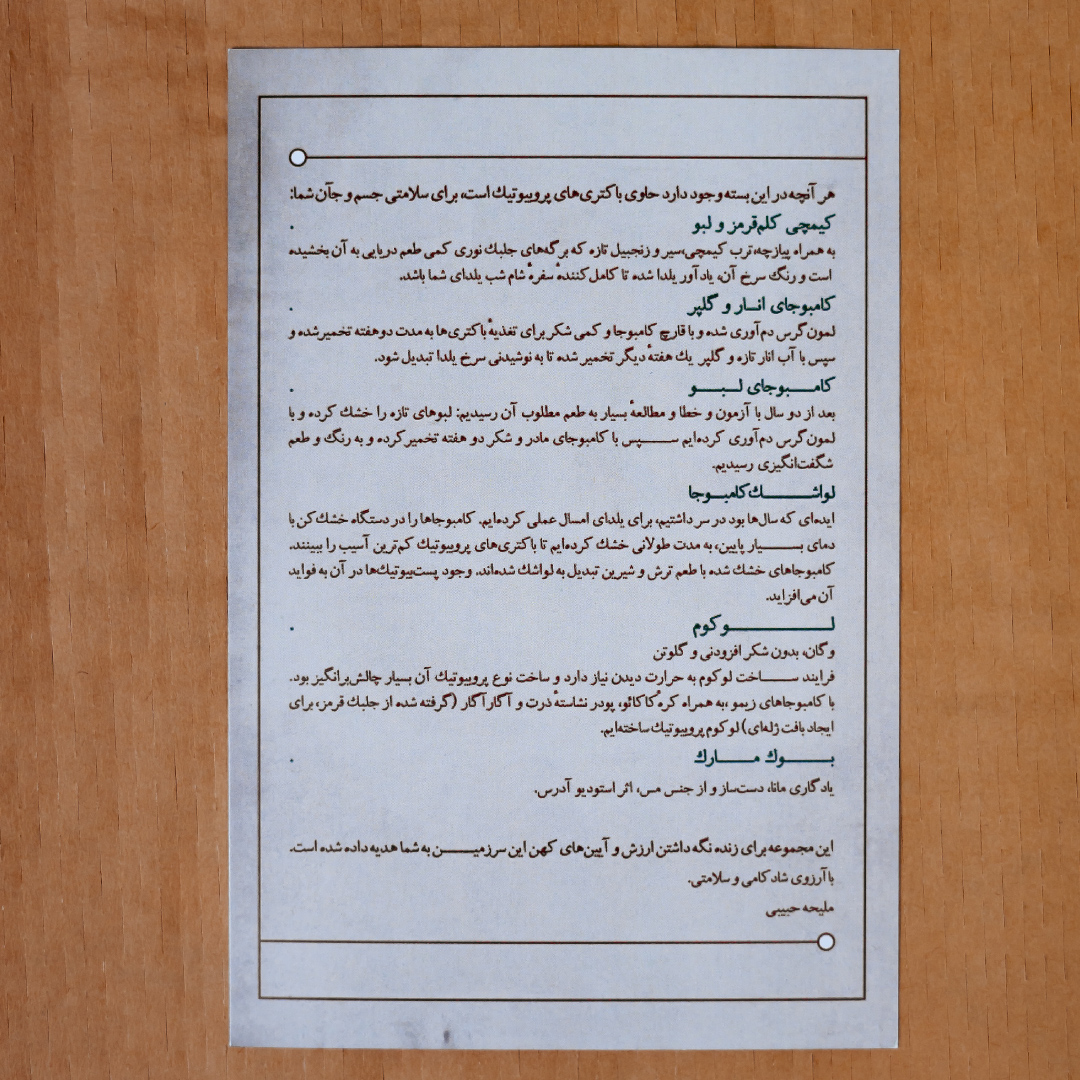 هر آنچه در این بسته وجود دارد حاوی باکتری‌های پروبیوتیک است، برای سلامتی جسم و جان شما:
کیمچی کلم‌قرمز و لبو
به همراه پیازچه،ترب کیمچی،سیر و زنجبیل تازه که برگه‌های جلبک نوری کمی طعم دریایی به آن بخشیده
است و رنگ سرخ آن، یادآور یلدا شده تا کامل‌کنندهٔ سفرهٔ شام شب یلدای شما باشد.
کامبوجای انـار و گلپر
لمون‌گرس دم‌آوری شده و با قارچ کامبوجا و کمی شکر برای تغذیهٔ باکتری‌ها به مدت دو هفته تخمیر شده و
سپس با آب انار تازه و گلپر یک هفتهٔ دیگر تخمیر شده تا به نوشیدنی سرخ یلدا تبدیل شود.
کامـبوجای لـبـو
بعد از دو سال با آزمون و خطا و مطالعهٔ بسیار به طعم مطلوب آن رسیدیم: لبوهای تازه را خشک کرده و با
لمون‌گرس دم‌آوری کرده‌ایم سـپس با کامبوجای مادر و شکر دو هفته تخمیر کرده و به رنگ و طعم
شگفت‌انگیزی رسیدیم.
لواشـک کامبـوجا
ایده‌ای که سال‌ها بود در سر داشتیم، برای یلدای امسال عملی کرده‌ایم. کامبوجاها را در دستگاه خشک‌کن با
دمای بـسیار پایین، به مدت طولانی خشک کرده‌ایم تا باکتری‌های پروبیوتیک کم‌ترین آسیب را ببینند.
کامبوجاهای خشک شده با طعم ترش و شیرین تبدیل به لواشک شده‌اند. وجود پست‌بیوتیک‌ها در آن به فواید
آن می‌افزاید.
لـوکوم
وگان، بدون شکر افزودنی و گلوتن
فرایند سـاخت لوکوم به حرارت دیدن نیاز دارد و ساخت نوع پروبیوتیک آن بسیار چالش‌برانگیز بود.
با کامبوجاهای زیمو ،به همراه کرهٔ کاکائو، پودر نشاستهٔ ذرت و آگارآگار (گرفته شده از جلبک قرمز، برای
ایجاد بافت ژله‌ای) لوکوم پروبیوتیک ساخته‌ایم.
بـوک مـارک
یادگاری مانا، دست‌ساز و از جنس مس، اثر استودیو آدرس.
این مجموعه برای زنده نگه داشتن ارزش و آیین‌های کهن این سرزمیـن به شما هدیه داده شده است.
با آرزوی شادکامی و سلامتی.
ملیحه حبیبی